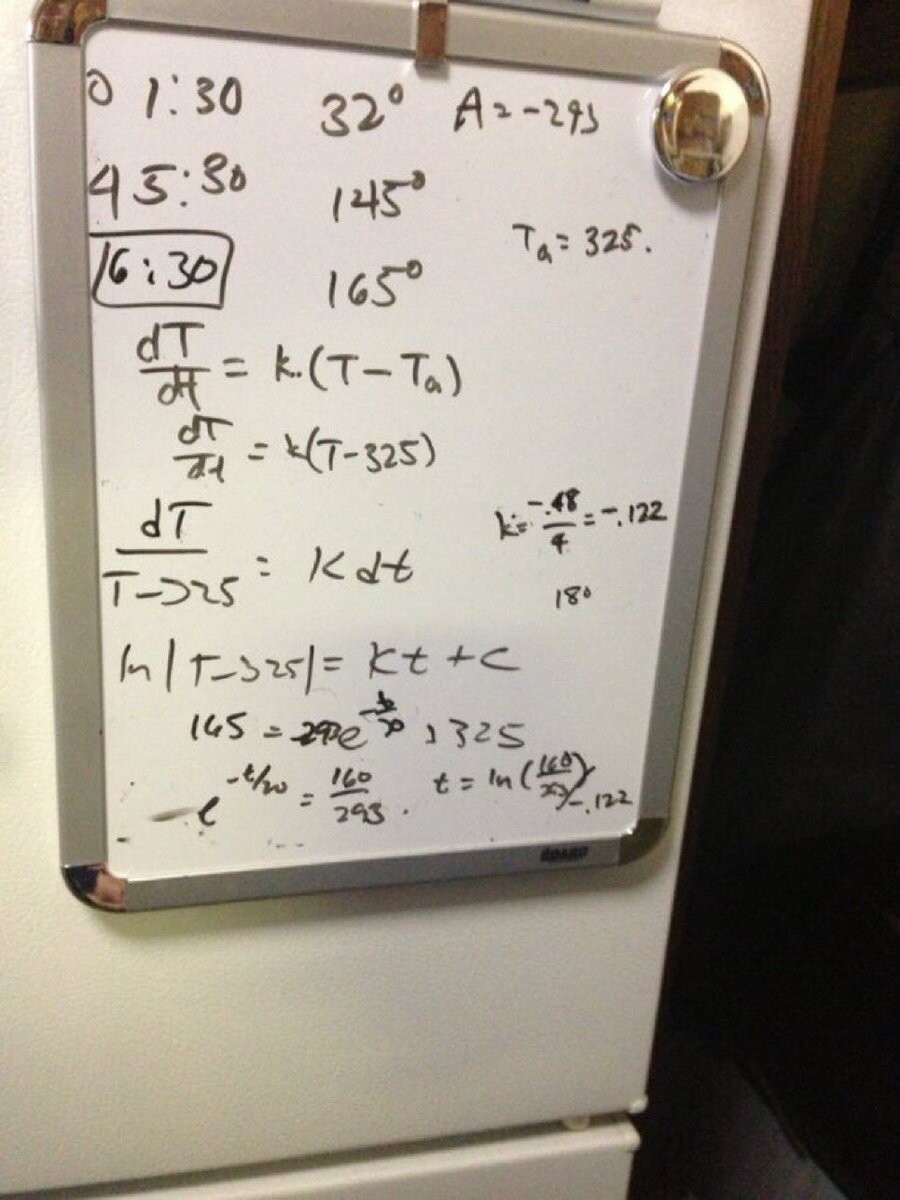 0 1:30 32° A = -293
4 5:30 145°
Ta = 325.
16:30 165°
dT/dt = k.(T-Ta)
dT/dt = k(T-325)
k = -.48/4 = -.122
dT/T-325 = K dt
180
ln|T-325| = Kt + C
165 = e + 325
e^-t/20 = 160/293. t = ln(160/293)/-.122
BOARD